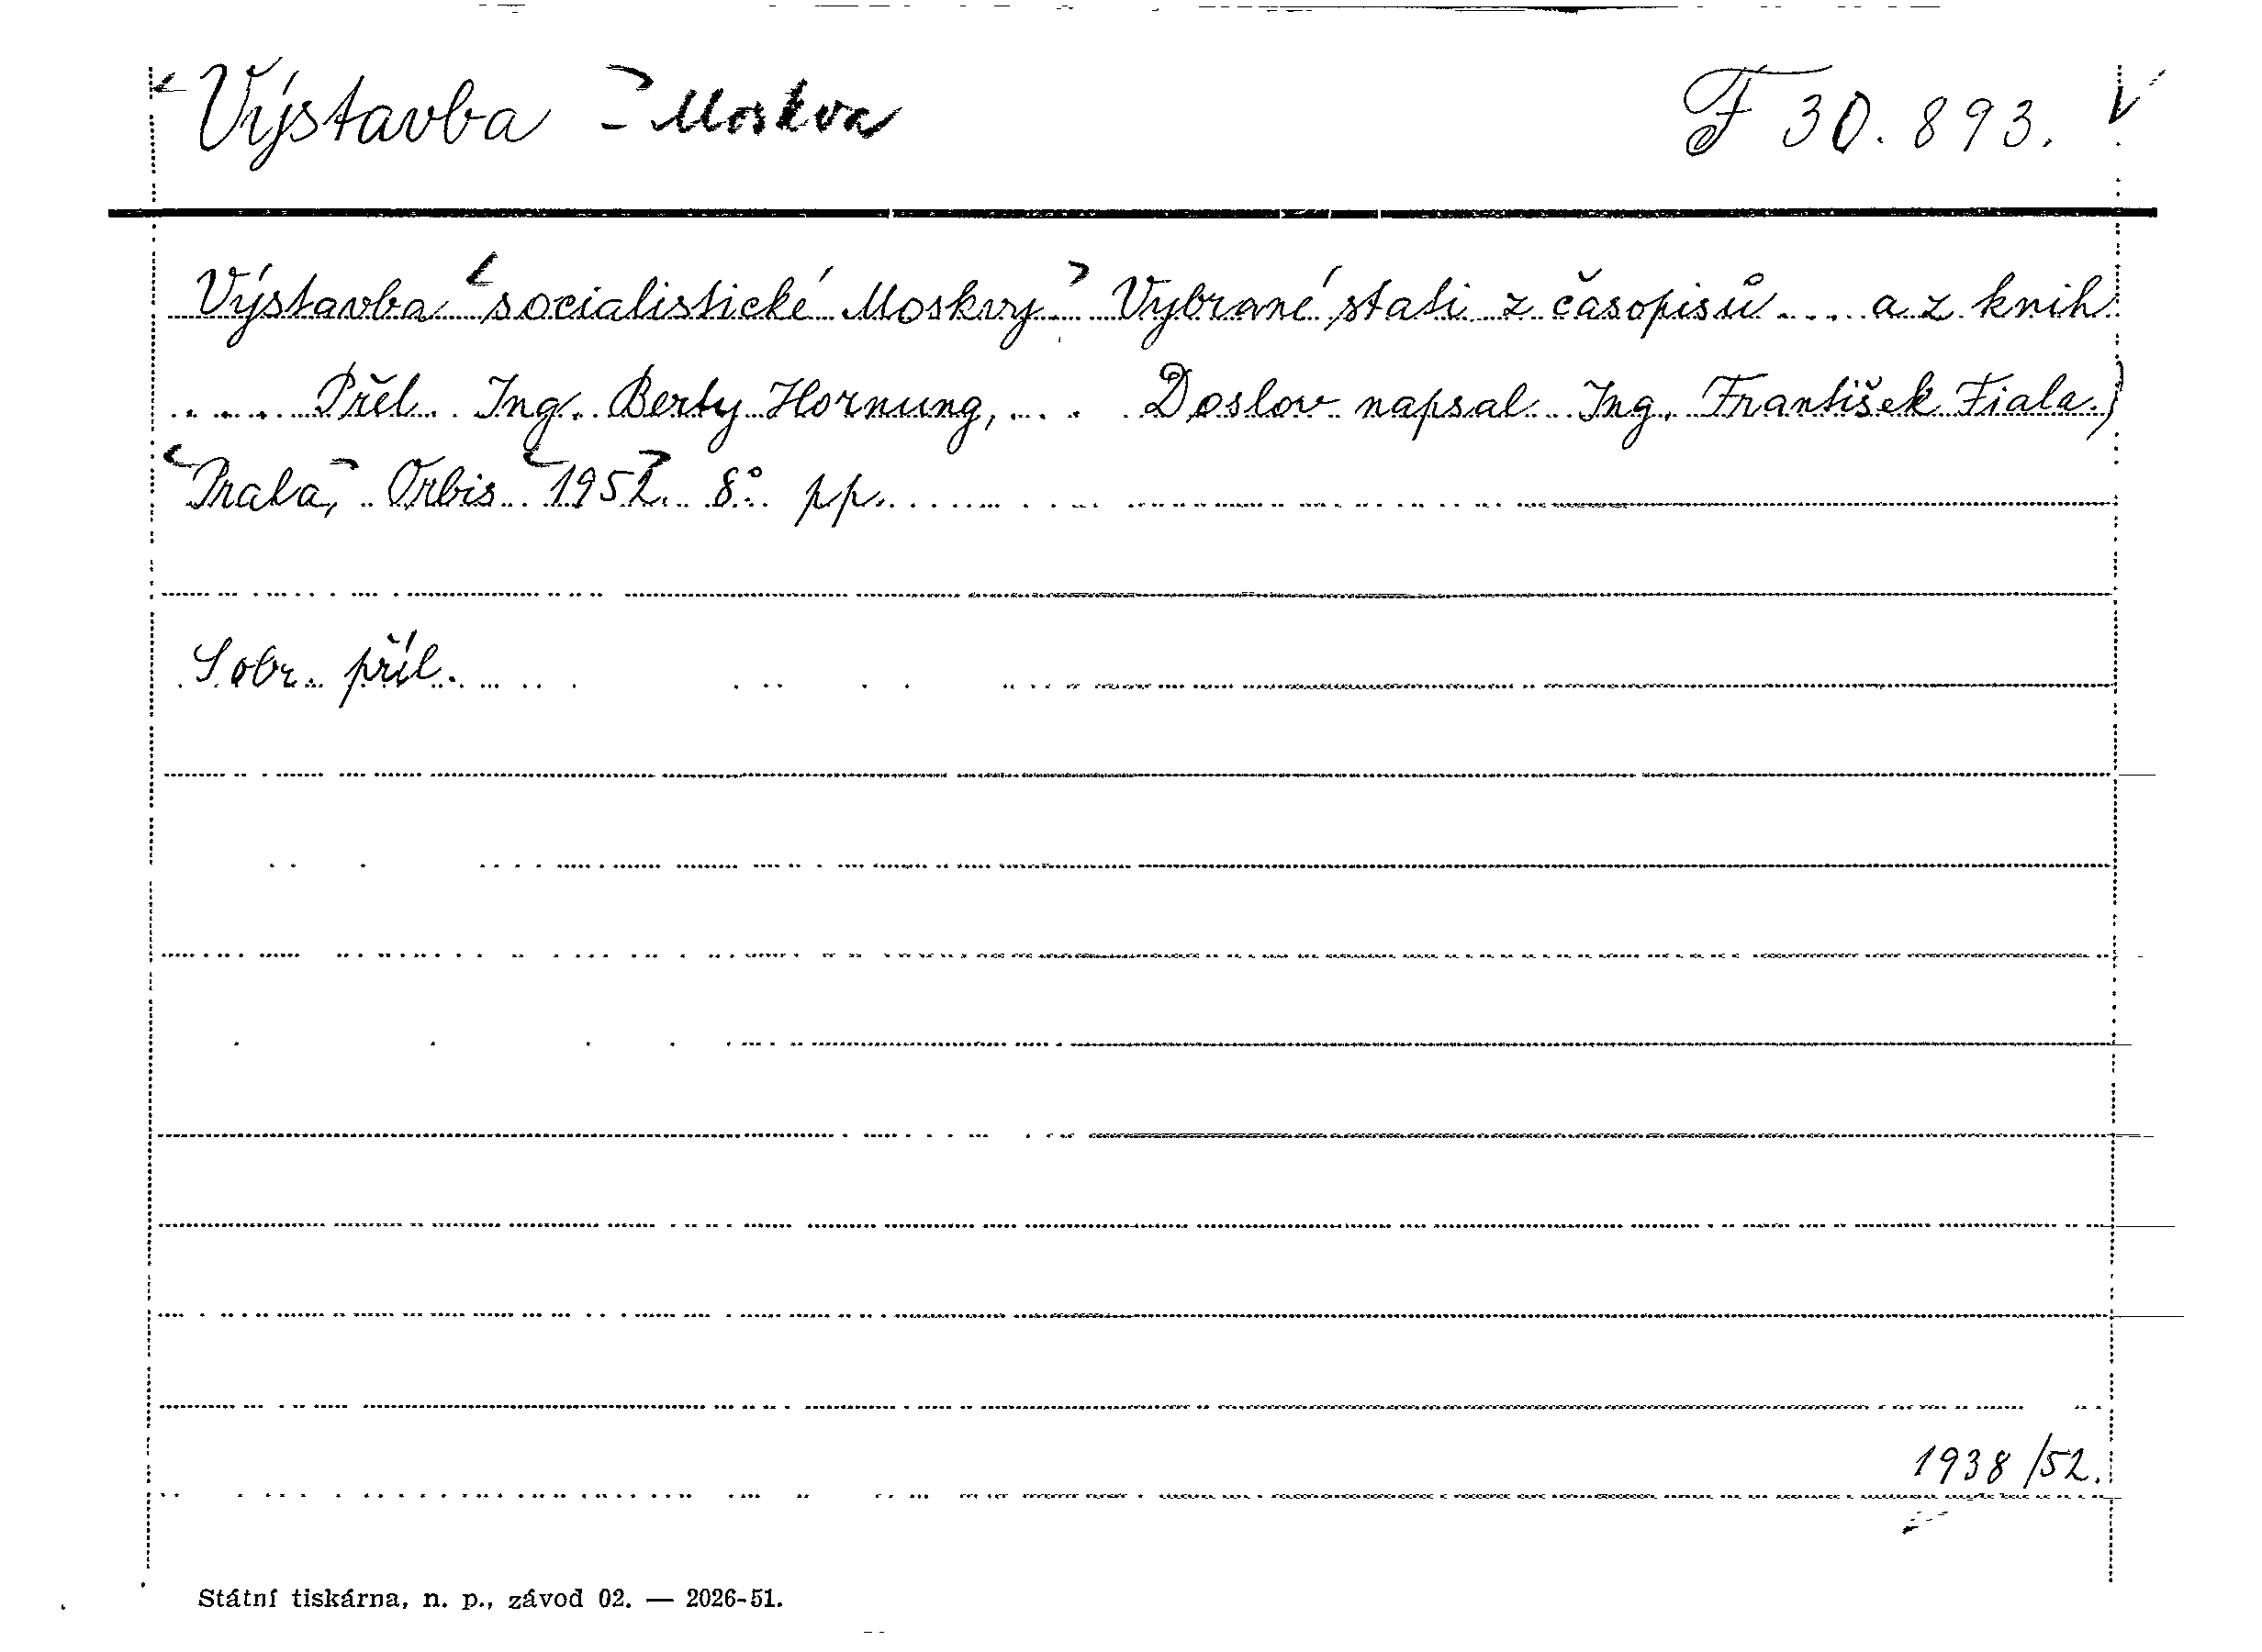 Výstavba - Moskva F 30.893. V
Výstavba socialistické Moskvy. Vybrané stati z časopisů .... a z knih
.... Přel. Ing. Berty Hornung, ... Doslov napsal Ing. František Fiala.)
Praha, Orbis 1952. 8° pp.
S obr. příl.
1938/52.
Státní tiskárna, n. p., závod 02. — 2026-51.